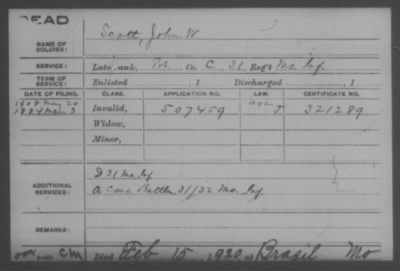 DEAD
NAME OF SOLDIER: Scott, John W.
SERVICE: Late, unk, Co. C, 31 Reg't Mo. Inf.
TERM OF SERVICE: Enlisted , 1 Discharged , 1
DATE OF FILING. CLASS. APPLICATION NO. LAW. CERTIFICATE NO.
1884 Mar. 3 Invalid, 507459 J 321289
Widow,
Minor,
ADDITIONAL SERVICES: D 31 Mo. Inf
A Cons. Battln. 31/32 Mo. Inf
REMARKS:
Died Feb 15, 1920, at Brazil Mo